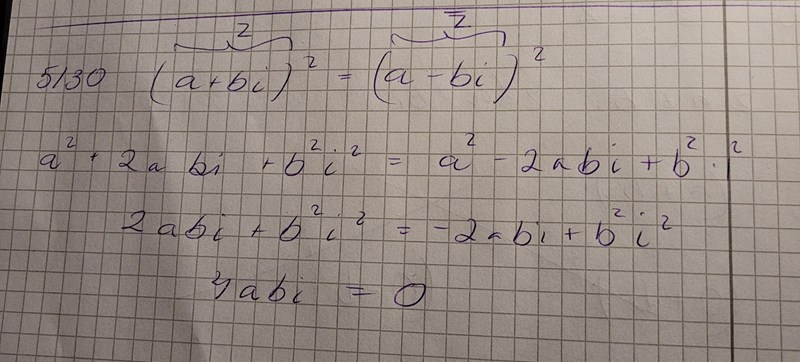 z z̅
5130 (a+bi)² = (a-bi)²
a² + 2abi + b²i² = a² - 2abi + b²·²
2abi + b²i² = -2abi + b²i²
4abi = 0